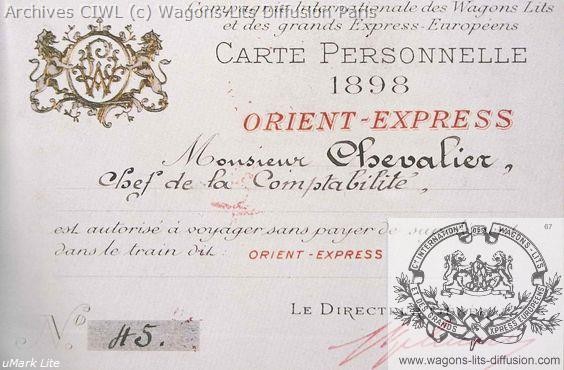 Archives CIWL (c) Wagons-Lits Diffusion Paris
Compagnie Internationale des Wagons Lits
et des grands Express-Européens
CARTE PERSONNELLE
1898
ORIENT-EXPRESS
Monsieur Chevalier,
Chef de la Comptabilité,
est autorisé à voyager sans payer de su
dans le train dit: ORIENT-EXPRESS
LE DIRECTE
No 45.
67
Cie INTERNATIONALE DES WAGONS-LITS
ET DES GRANDS EXPRESS EUROPÉENS
www.wagons-lits-diffusion.com
uMark Lite